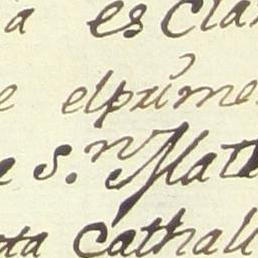 a es Cla
e elpúme
e S.n Math
ta Cathall